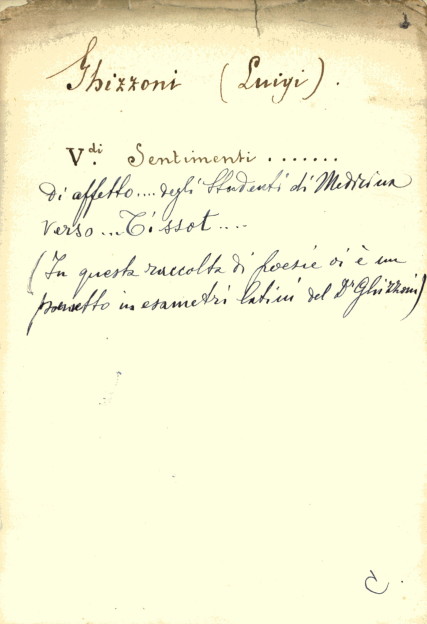 Ghizzoni (Luigi).
V.di Sentimenti .......
di affetto.... degli Studenti di Medicina
verso... Tissot....
(In questa raccolta di poesie vi è un
poemetto in esametri latini del Dr Ghizzoni)
C.